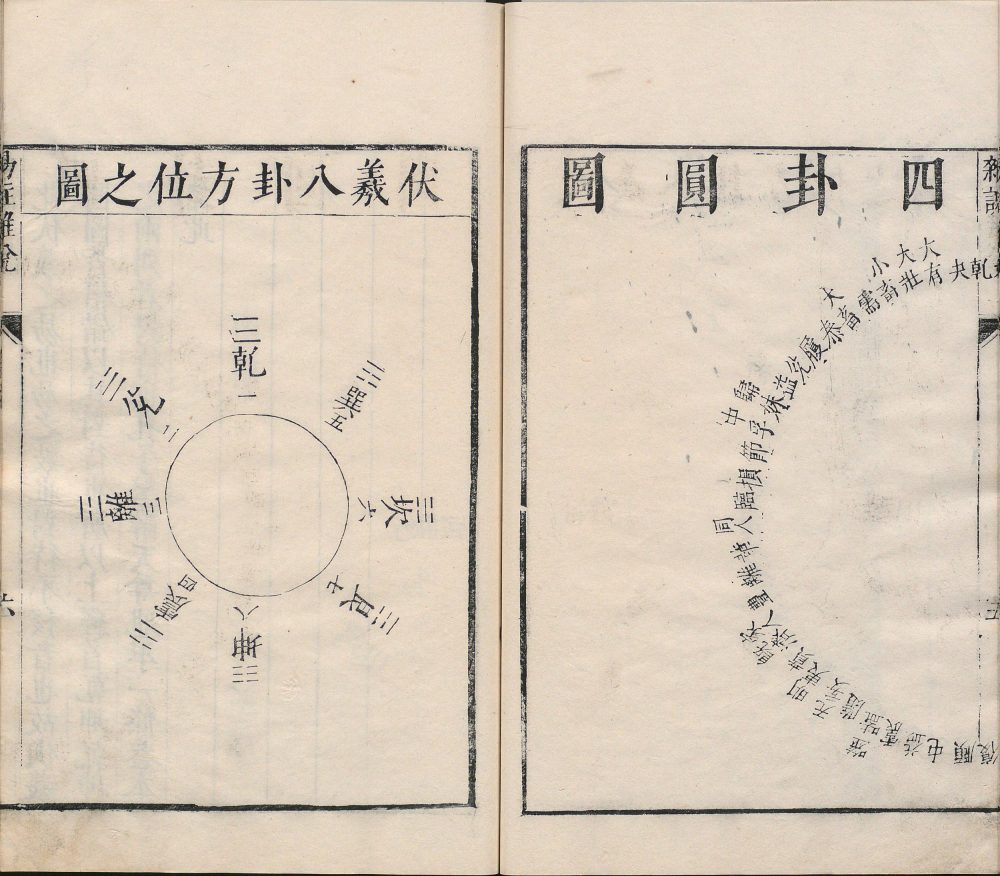 四卦圓圖
乾
夬
大有
大壯
小畜
需
大畜
泰
履
兌
歸妹
中孚
節
損
臨
同人
革
離
豐
家人
既濟
賁
明夷
无妄
隨
噬嗑
震
益
屯
頤
復
伏羲八卦方位之圖
乾一
兌二
離三
震四
巽五
坎六
艮七
坤八
六